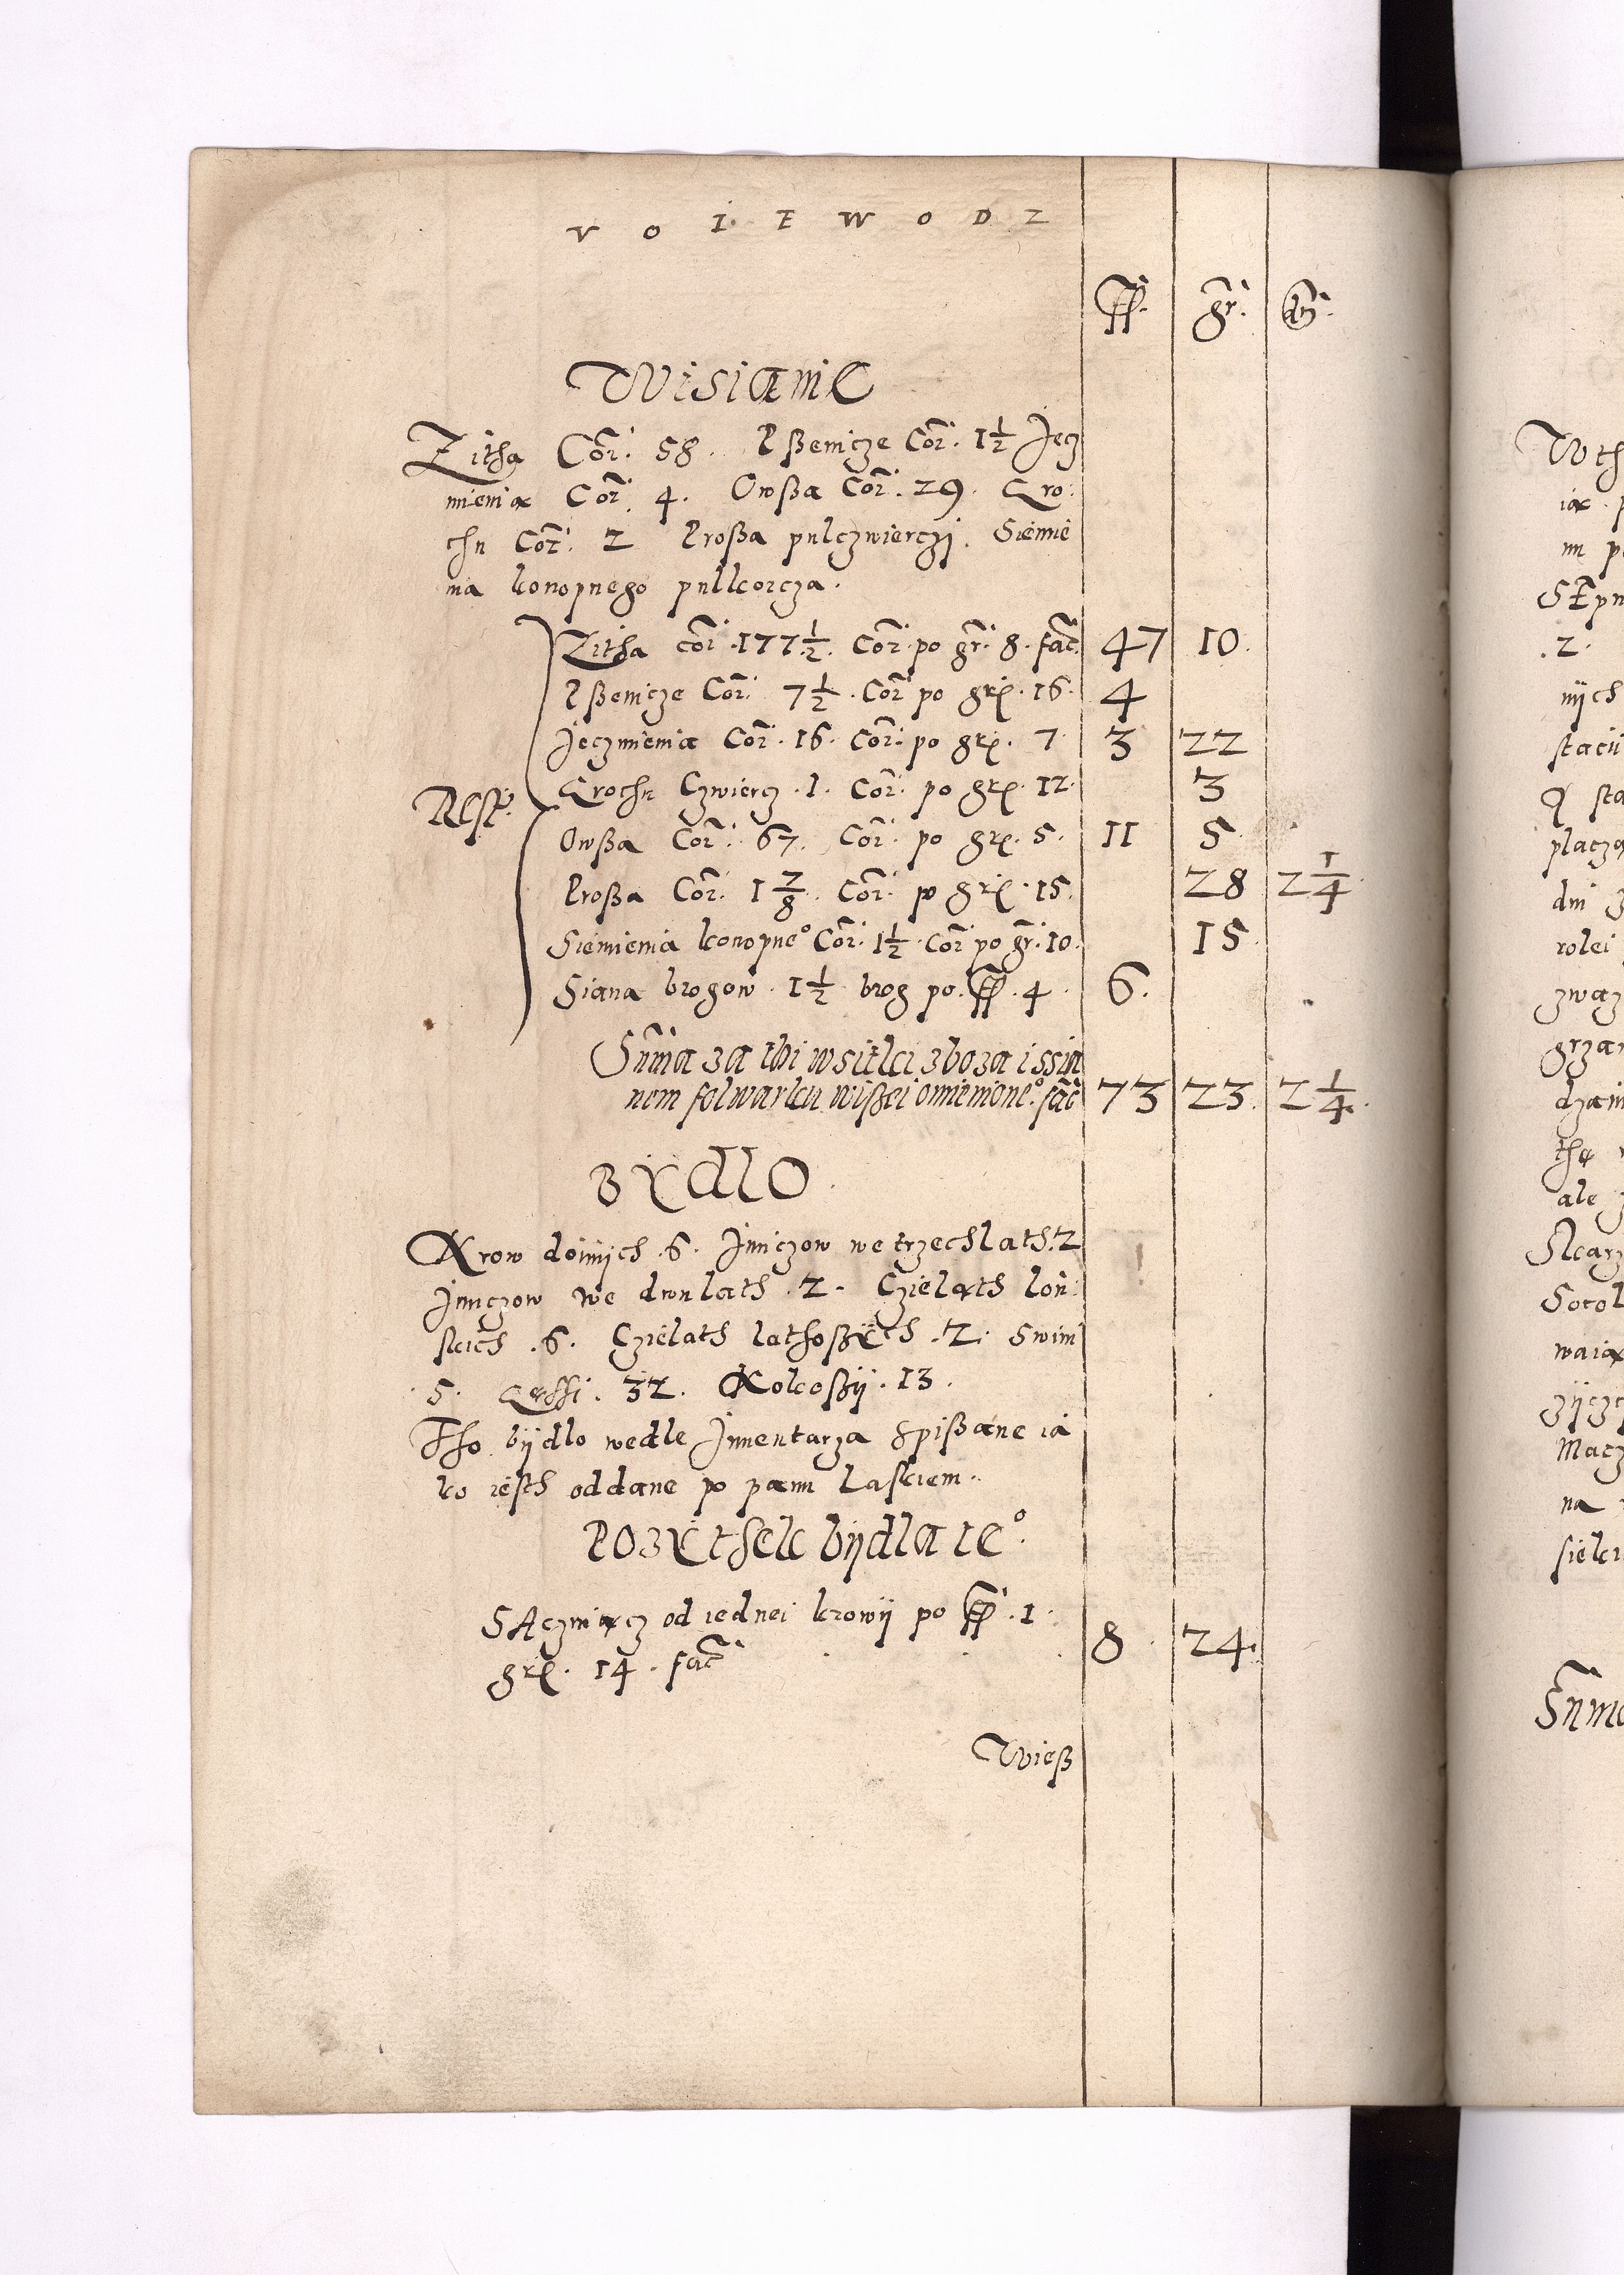 V O I E W O D Z
ff. gr. dn.
Wisianie
Zitha Cor. 58. Pßenicze Cor. 1½ Jęcz
mienia Cor. 4. Owßa Cor. 29. Gro:
chu Cor. 2 Proßa pulczwierczi. Siemie
nia konopnego pulkorcza.
Rest.
Zitha cor. 177½. Cor. po gr. 8. fac. 47 10.
Pßenicze Cor. 7½. Cor. po grę. 16. 4
Jęczmienia Cor. 16. Cor. po grę. 7 3 22
Grochu Czwiercz. 1. Cor. po grę. 12. 3
Owßa Cor. 67. Cor. po grę. 5. 11 5.
Proßa Cor. 1 7/8. Cor. po grę. 15. 28 2¼.
Siemienia konopne° Cor. 1½. Cor. po gr. 10. 15.
Siana brogow. 1½ brog po. ff. 4. 6.
Suma za thi wsitki zboza i ssia
nem folwarku wißei omienione° fac 73 23. 2¼.
Bydlo.
Krow doinych. 6. Junczow we trzech lath. 2
Junczow we dwu lath. 2. Czieląth lon:
skich. 6. Cziełath lathoßych. 2. Swini
5. Gęssi. 32. Kokoßÿ. 13.
Tho bÿdlo wedle Inwentarza spißane ia
ko iesth oddane po panu Laskiem.
Pozythek bÿdla te°.
SAczuiącz od iednei krowÿ po ff. 1.
grę. 14. fac 8. 24.
Wieß